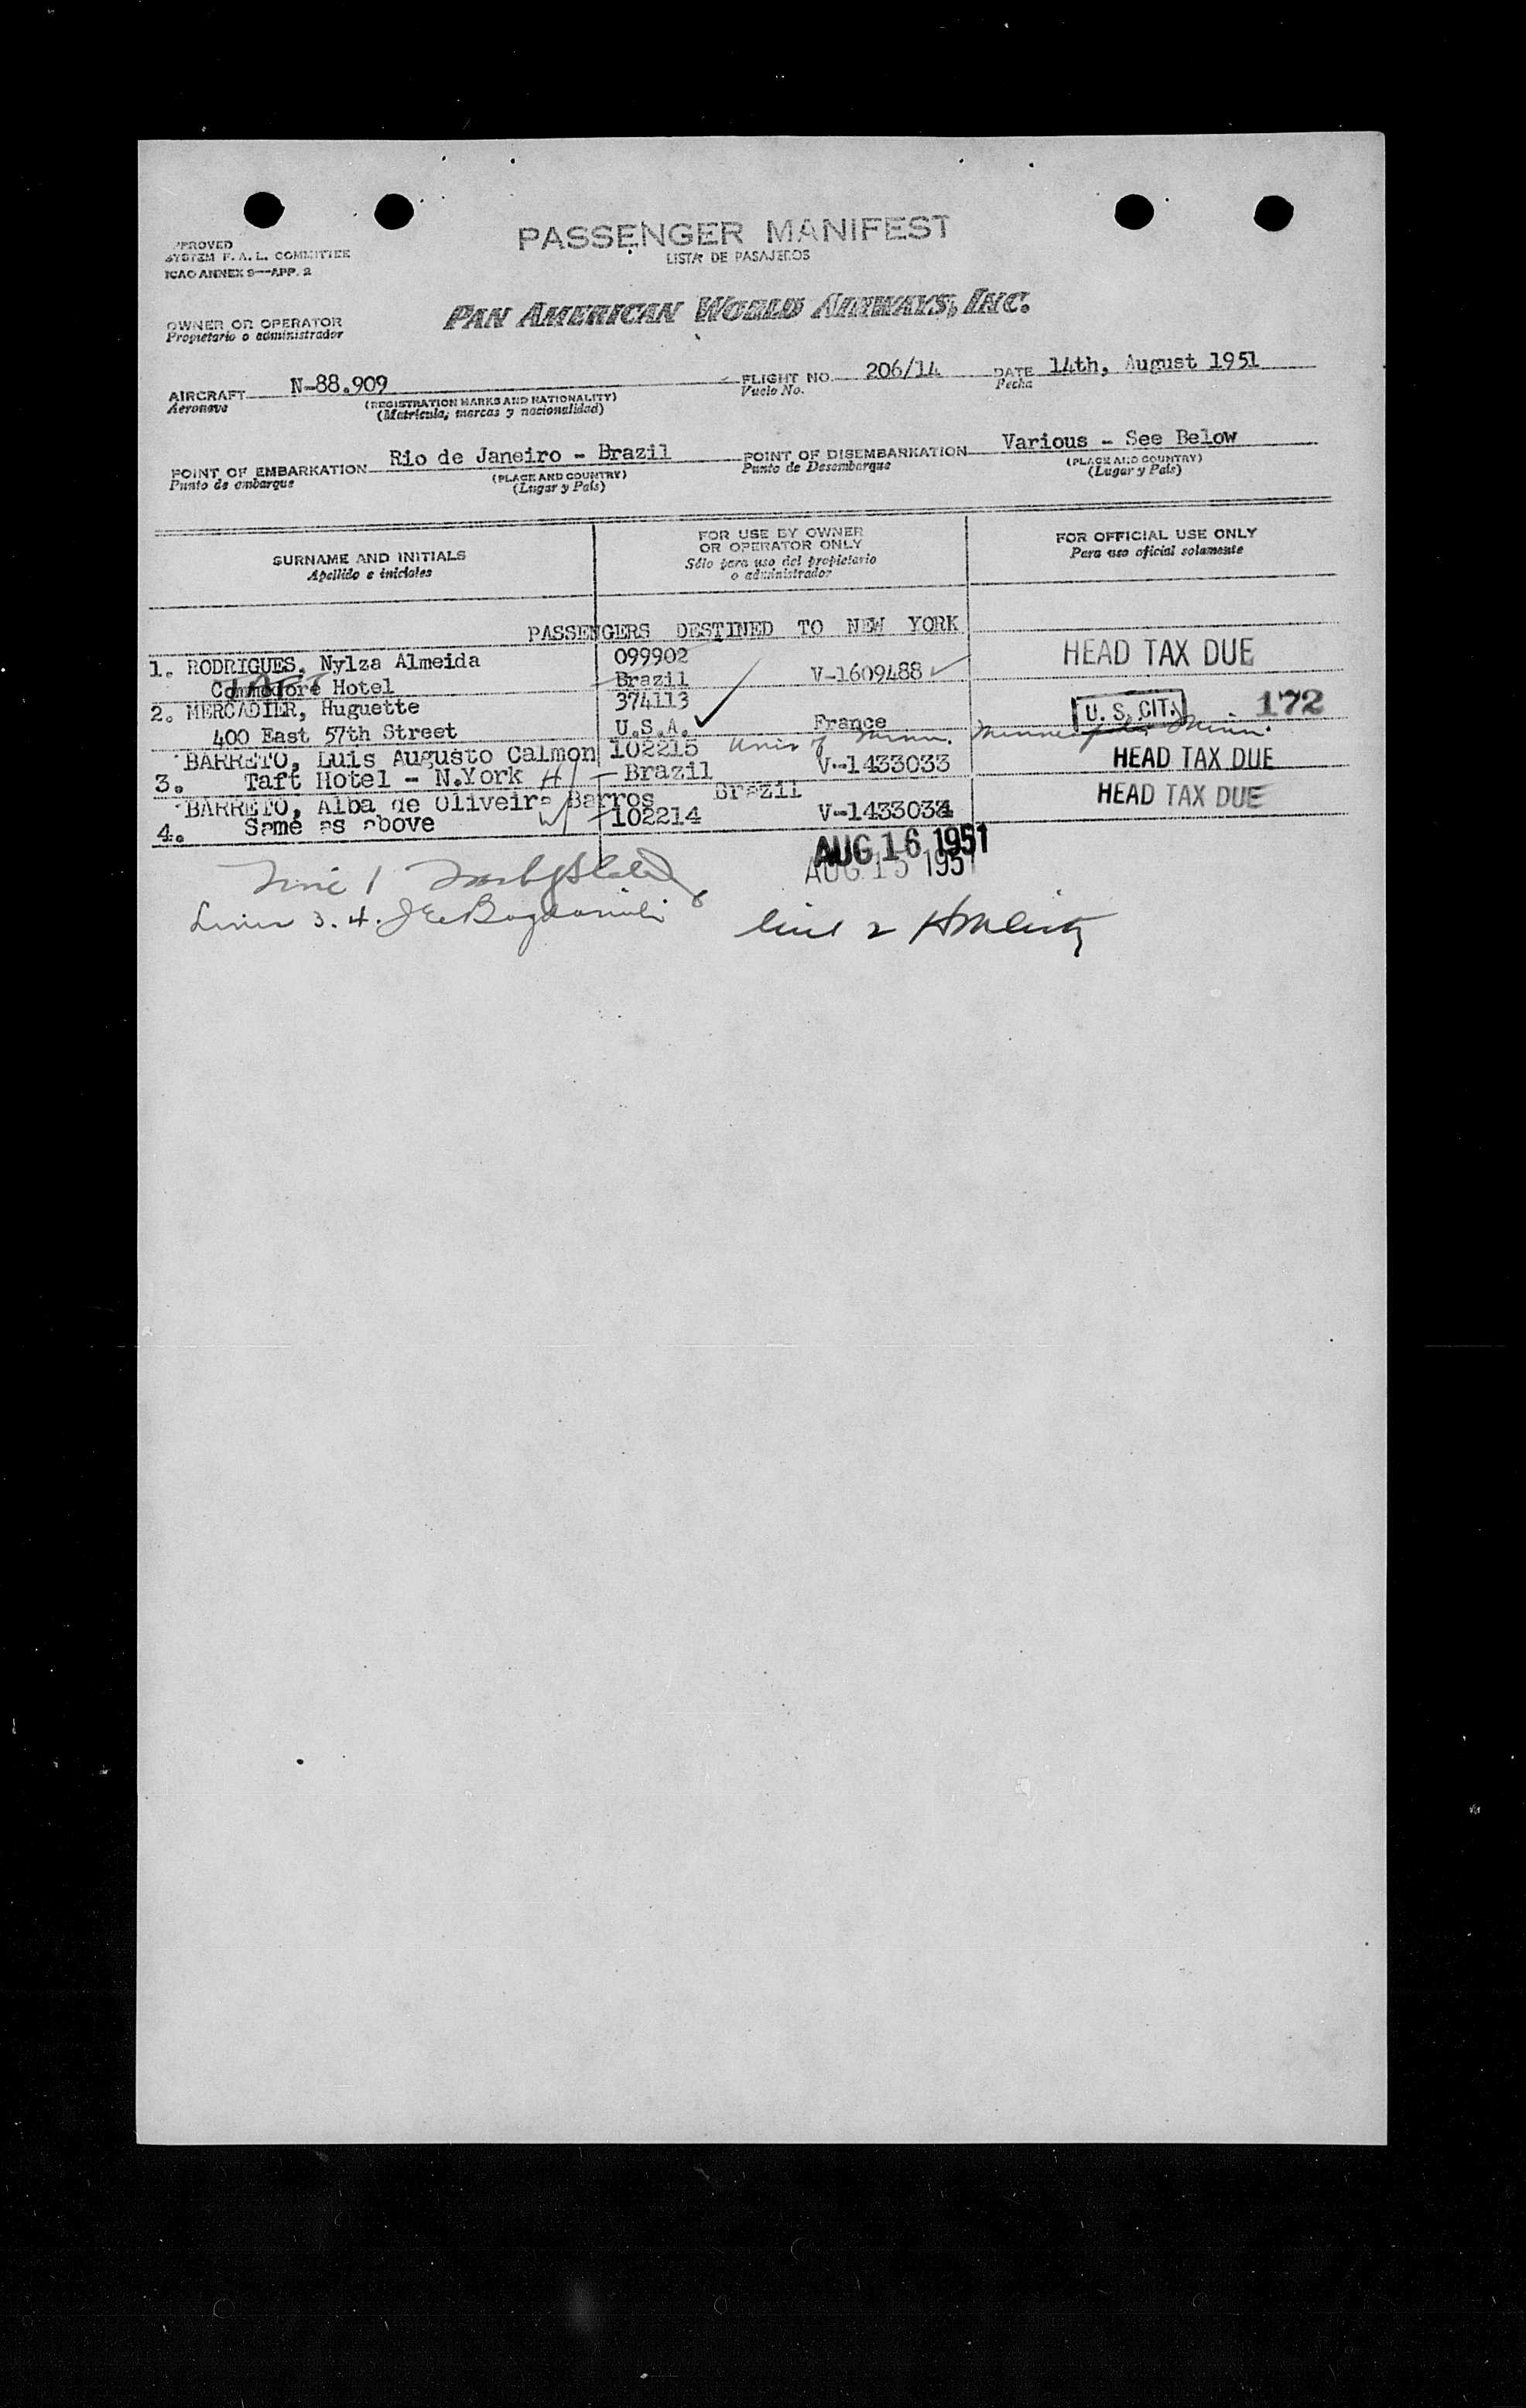 PASSENGER MANIFEST
LISTA DE PASAJEROS
APPROVED
SYSTEM F. A. L. COMMITTEE
ICAO ANNEX 9—APP. 2
PAN AMERICAN WORLD AIRWAYS, INC.
OWNER OR OPERATOR
Propietario o administrador
AIRCRAFT N-88.909 FLIGHT NO. 206/14 DATE 14th, August 1951
Aeronave (REGISTRATION MARKS AND NATIONALITY) Vuelo No. Fecha
(Matricula, marcas y nacionalidad)
POINT OF EMBARKATION Rio de Janeiro - Brazil POINT OF DISEMBARKATION Various - See Below
Punto de embarque (PLACE AND COUNTRY) Punto de Desembarque (PLACE AND COUNTRY)
(Lugar y País) (Lugar y País)
SURNAME AND INITIALS FOR USE BY OWNER OR OPERATOR ONLY FOR OFFICIAL USE ONLY
Apellido e iniciales Sólo para uso del propietario o administrador Para uso oficial solamente
PASSENGERS DESTINED TO NEW YORK
1. RODRIGUES, Nylza Almeida 099902 HEAD TAX DUE
TAFT
Commodore Hotel Brazil V-1609488
2. MERCADIER, Huguette 374113 U. S. CIT. 172
400 East 57th Street U.S.A. France
Univ of Minn. Minn.
BARRETO, Luis Augusto Calmon 102215 HEAD TAX DUE
3. Taft Hotel - N.York H Brazil V-1433033
BARRETO, Alba de Oliveira Barros Brazil HEAD TAX DUE
4. Same as above W 102214 V-1433034
AUG 16 1951
AUG 15 1951
Line 1
Lines 3. 4.
line 2